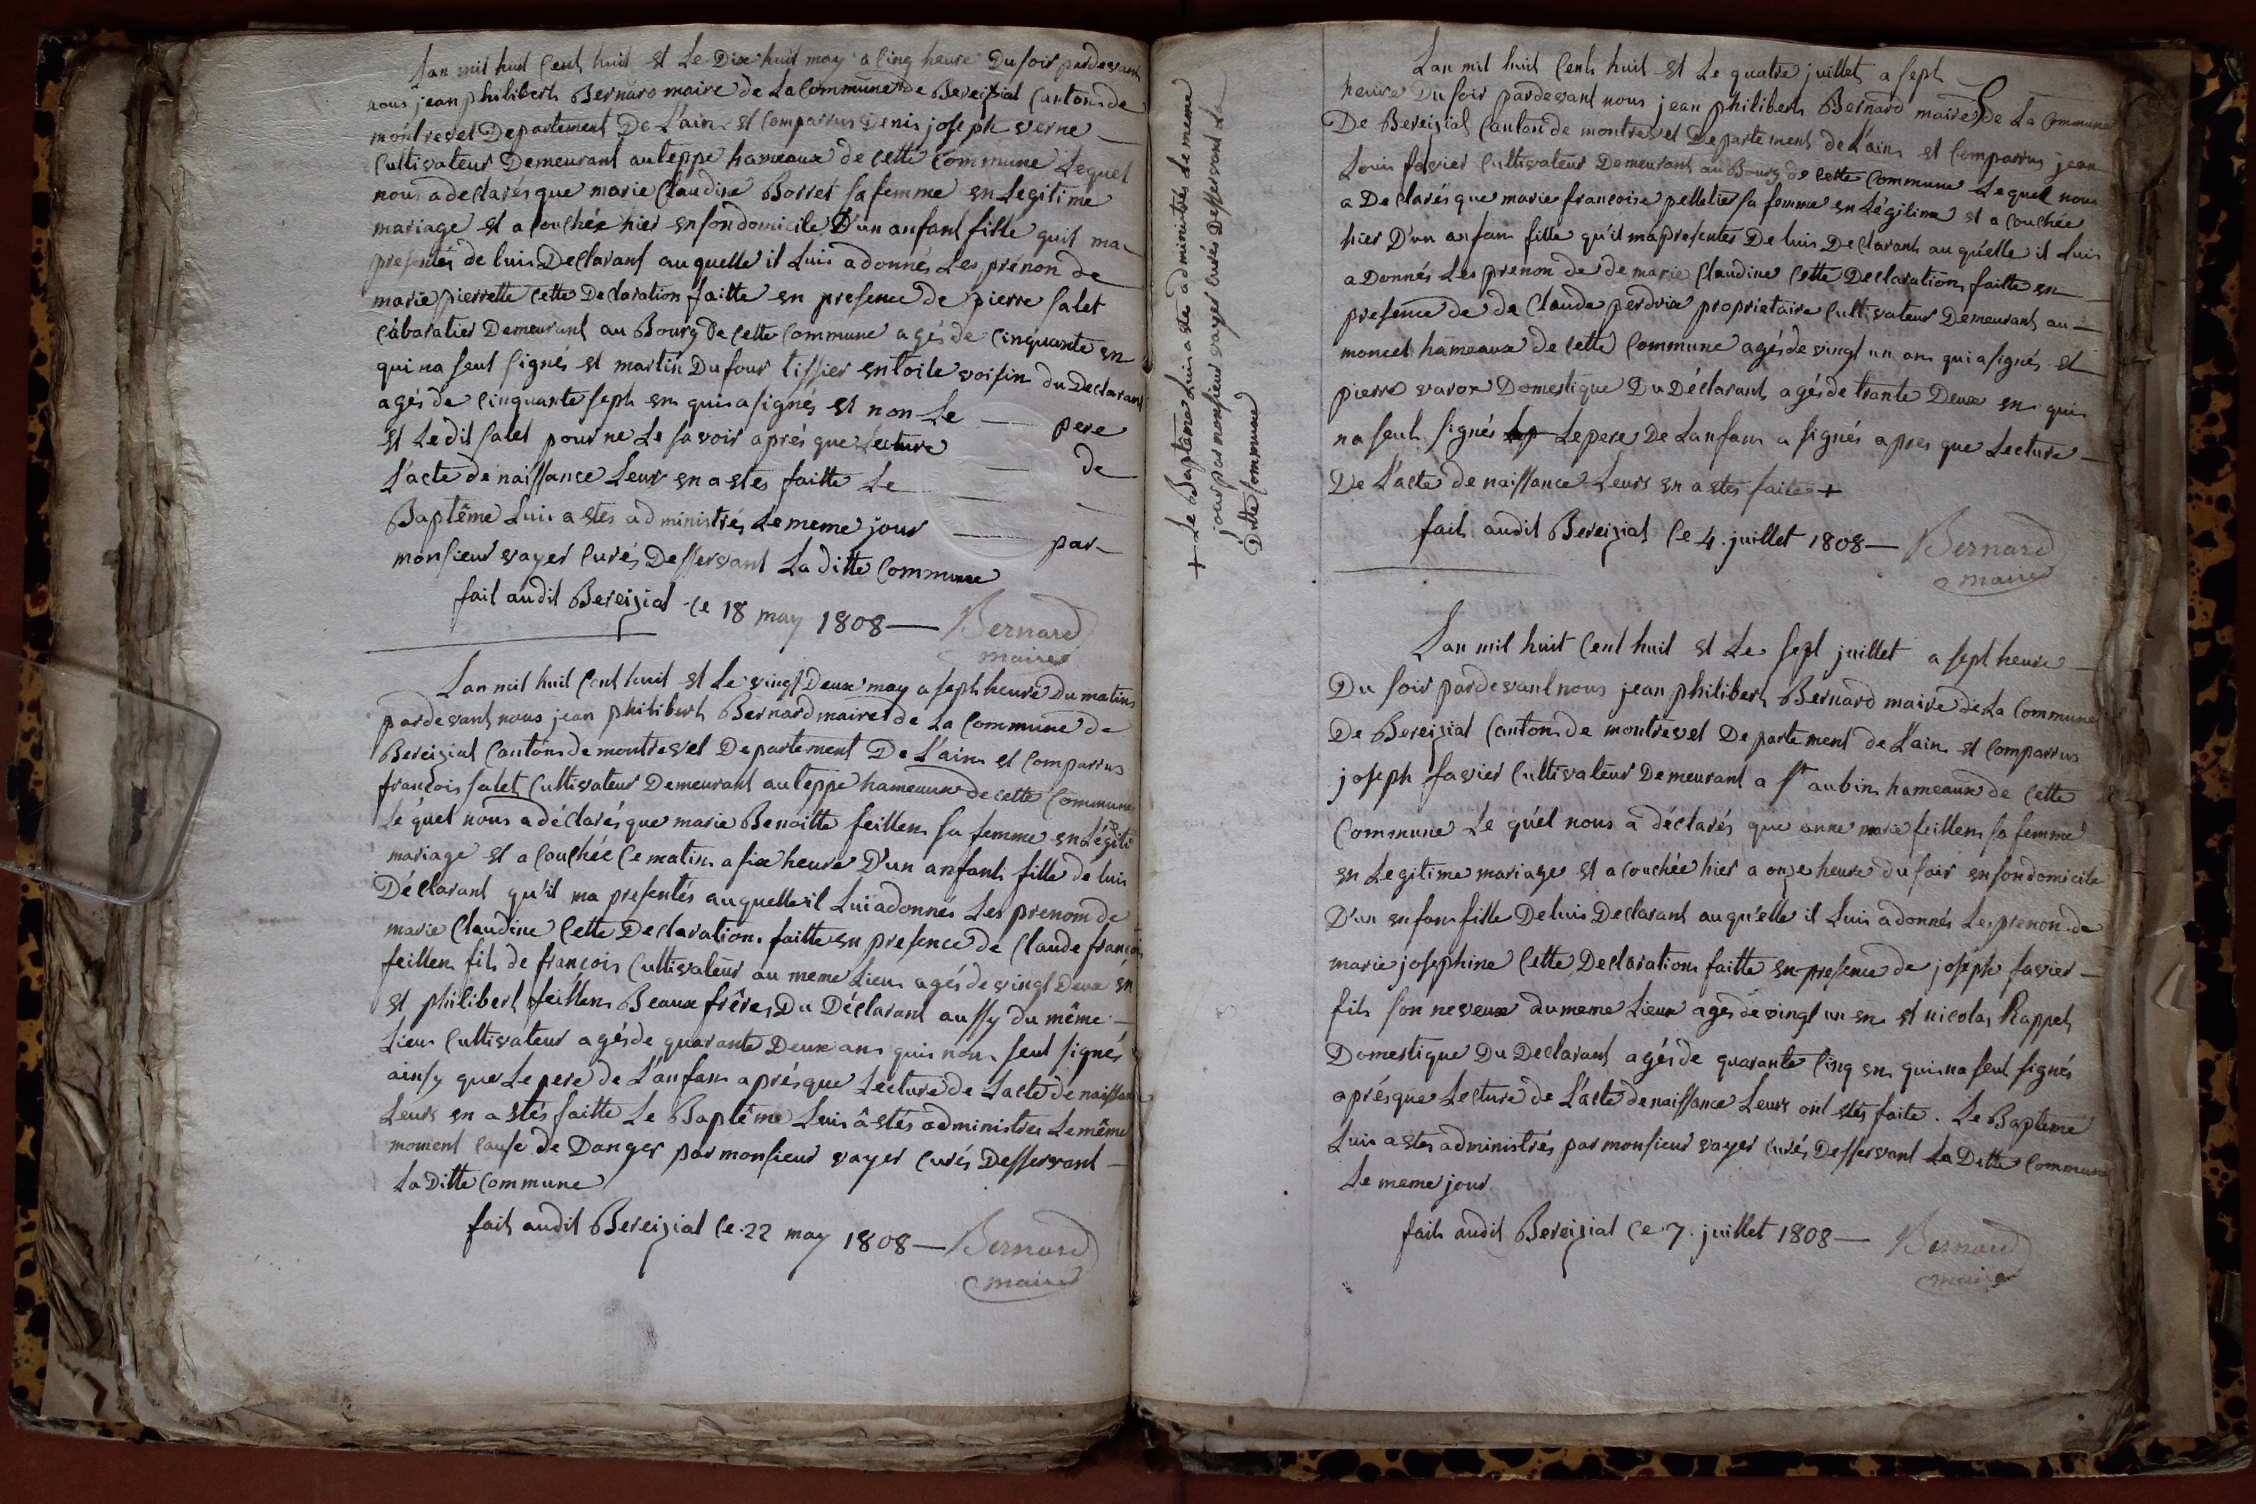 Lan mil huit Cent huit et Le Dix huit may a Cinq heure Du soir pardevant
nous jean philibert Bernard maire de La Commune de Bereizial Canton de
montrevel Departement De L'ain et Comparrus Denis joseph verne
Cultivateur Demeurant au teppe hameaux de cette Commune Lequel
nous a declarés que marie Claudine Borret sa femme en Legitime
mariage et a Couchée hier en son domicile D'un anfant fille quil ma
presentés de luis Declarant au quelle il Luis a donnés Les prénon de
marie pierrette Cette Declaration faitte en presence de pierre salet
Cabaratier Demeurant au Bourg de Cette Commune agés de Cinquante en
qui na seut signés et martin Dufour tissier en toile voisin du Declarant
agés de Cinquante seph en quis a signés et non Le — pere
et Le dit salet pour ne Le savoir aprés que Lecture — de
L'acte de naissance Leur en a etes faitte Le —
Baptême Luis a etés administrés Le meme jour — par
monsieur vayer Curés Desservant La ditte Commune
fait audit Bereizial Ce 18 may 1808 — Bernard
maire
Lan mil huit Cent huit et Le vingt Deux may a seph heure Du matins
pardevant nous jean philibert Bernard maire de La Commune de
Bereizial Canton de montrevel Departement De L'ain et Comparrus
françois salet Cultivateur Demeurant au teppe hameaux de cette Commune
Lé quel nous a déclarés que marie Benoitte feillens sa femme en Légiti
mariage et a Couchée Ce matin a six heure D'un anfant fille de luis
Déclarant qu'il ma presentés au quelle il Lui a donnés Les prenom de
marie Claudine Cette Declaration faitte en presence de Claude françois
feillens fils de françois Cultivateur au meme Lieu agés de vingt Deux en
et philibert feillens Beaux frêre Du Déclarant aussy du même —
Lieu Cultivateur agés de quarante Deux ans quis nons seut signés
ainsy que Le pere de L'anfans aprés que Lecture de L'acte de naissance
Leurs en a etés faitte Le Baptême Luis â etés administrés Le même
moment Cause de Danger par monsieur vayer Curés Desservant —
La Ditte Commune
fait audit Bereizial Ce 22 may 1808 — Bernard
maire
+ Le Bapteme Luis a ete administrés Le meme
jour par monsieur vayer Curés Desservant La
Ditte Commune
Lan mil huit Cent huit et Le quatre juillet a seph
heure Du soir pardevant nous jean philibert Bernard maire de La Commune
De Bereizial Canton de montrevel Departement de L'ain et Comparrus jean
Louis favier Cultivateur Demeurant au Bourg de Cette Commune Lequel nous
a Declarés que marie francoise pelletier sa femme en Légitime et a Couchée
hier D'un anfans fille qu'il ma presentes De luis Declarant au qu'elle il Luis
a Donnés Les prenon de de marie Claudine Cette Declaration faitte en —
presence de de Claude perdrix proprietaire Cultivateur Demeurant au —
moncel hameaux de Cette Commune agés de vingt un ans qui a signés et
pierre varox Domestique Du Déclarant agés de trante Deux en quis
na seut signés Le pere De L'anfans a signés apres que Lecture —
De L'acte de naissance Leurs en a etes faite +
fait audit Bereizial Ce 4 juillet 1808 — Bernard
maire
Lan mil huit Cent huit et Le sept juillet a sept heure —
Du soir pardevant nous jean philibert Bernard maire de La Commune
De Bereizial Canton de montrevel Departement de L'ain et Comparrus
joseph favier Cultivateur Demeurant a St aubin hameaux de Cette
Commune Lé qu'el nous a déclarés que anne marie feillens sa femme
en Legitime mariage et a Couchée hier a onze heure du soir en son domicile
D'un enfans fille De luis Declarant au qu'elle il Luis a donnés Les prenon de
marie josephine Cette Declaration faitte en presence de joseph favier —
fils son neveux du meme Lieux agés de vingt un en et nicolas Rappet
Domestique Du Declarant agés de quarante Cinq en quis na seut signés
aprés que Lecture de L'acte de naissance Leurs ont etés faite. Le Bapteme
Luis a etes administrés par monsieur vayer Curés Desservant La Ditte Commune
Le meme jour
fait audit Bereizial Ce 7 juillet 1808 — Bernard
maire